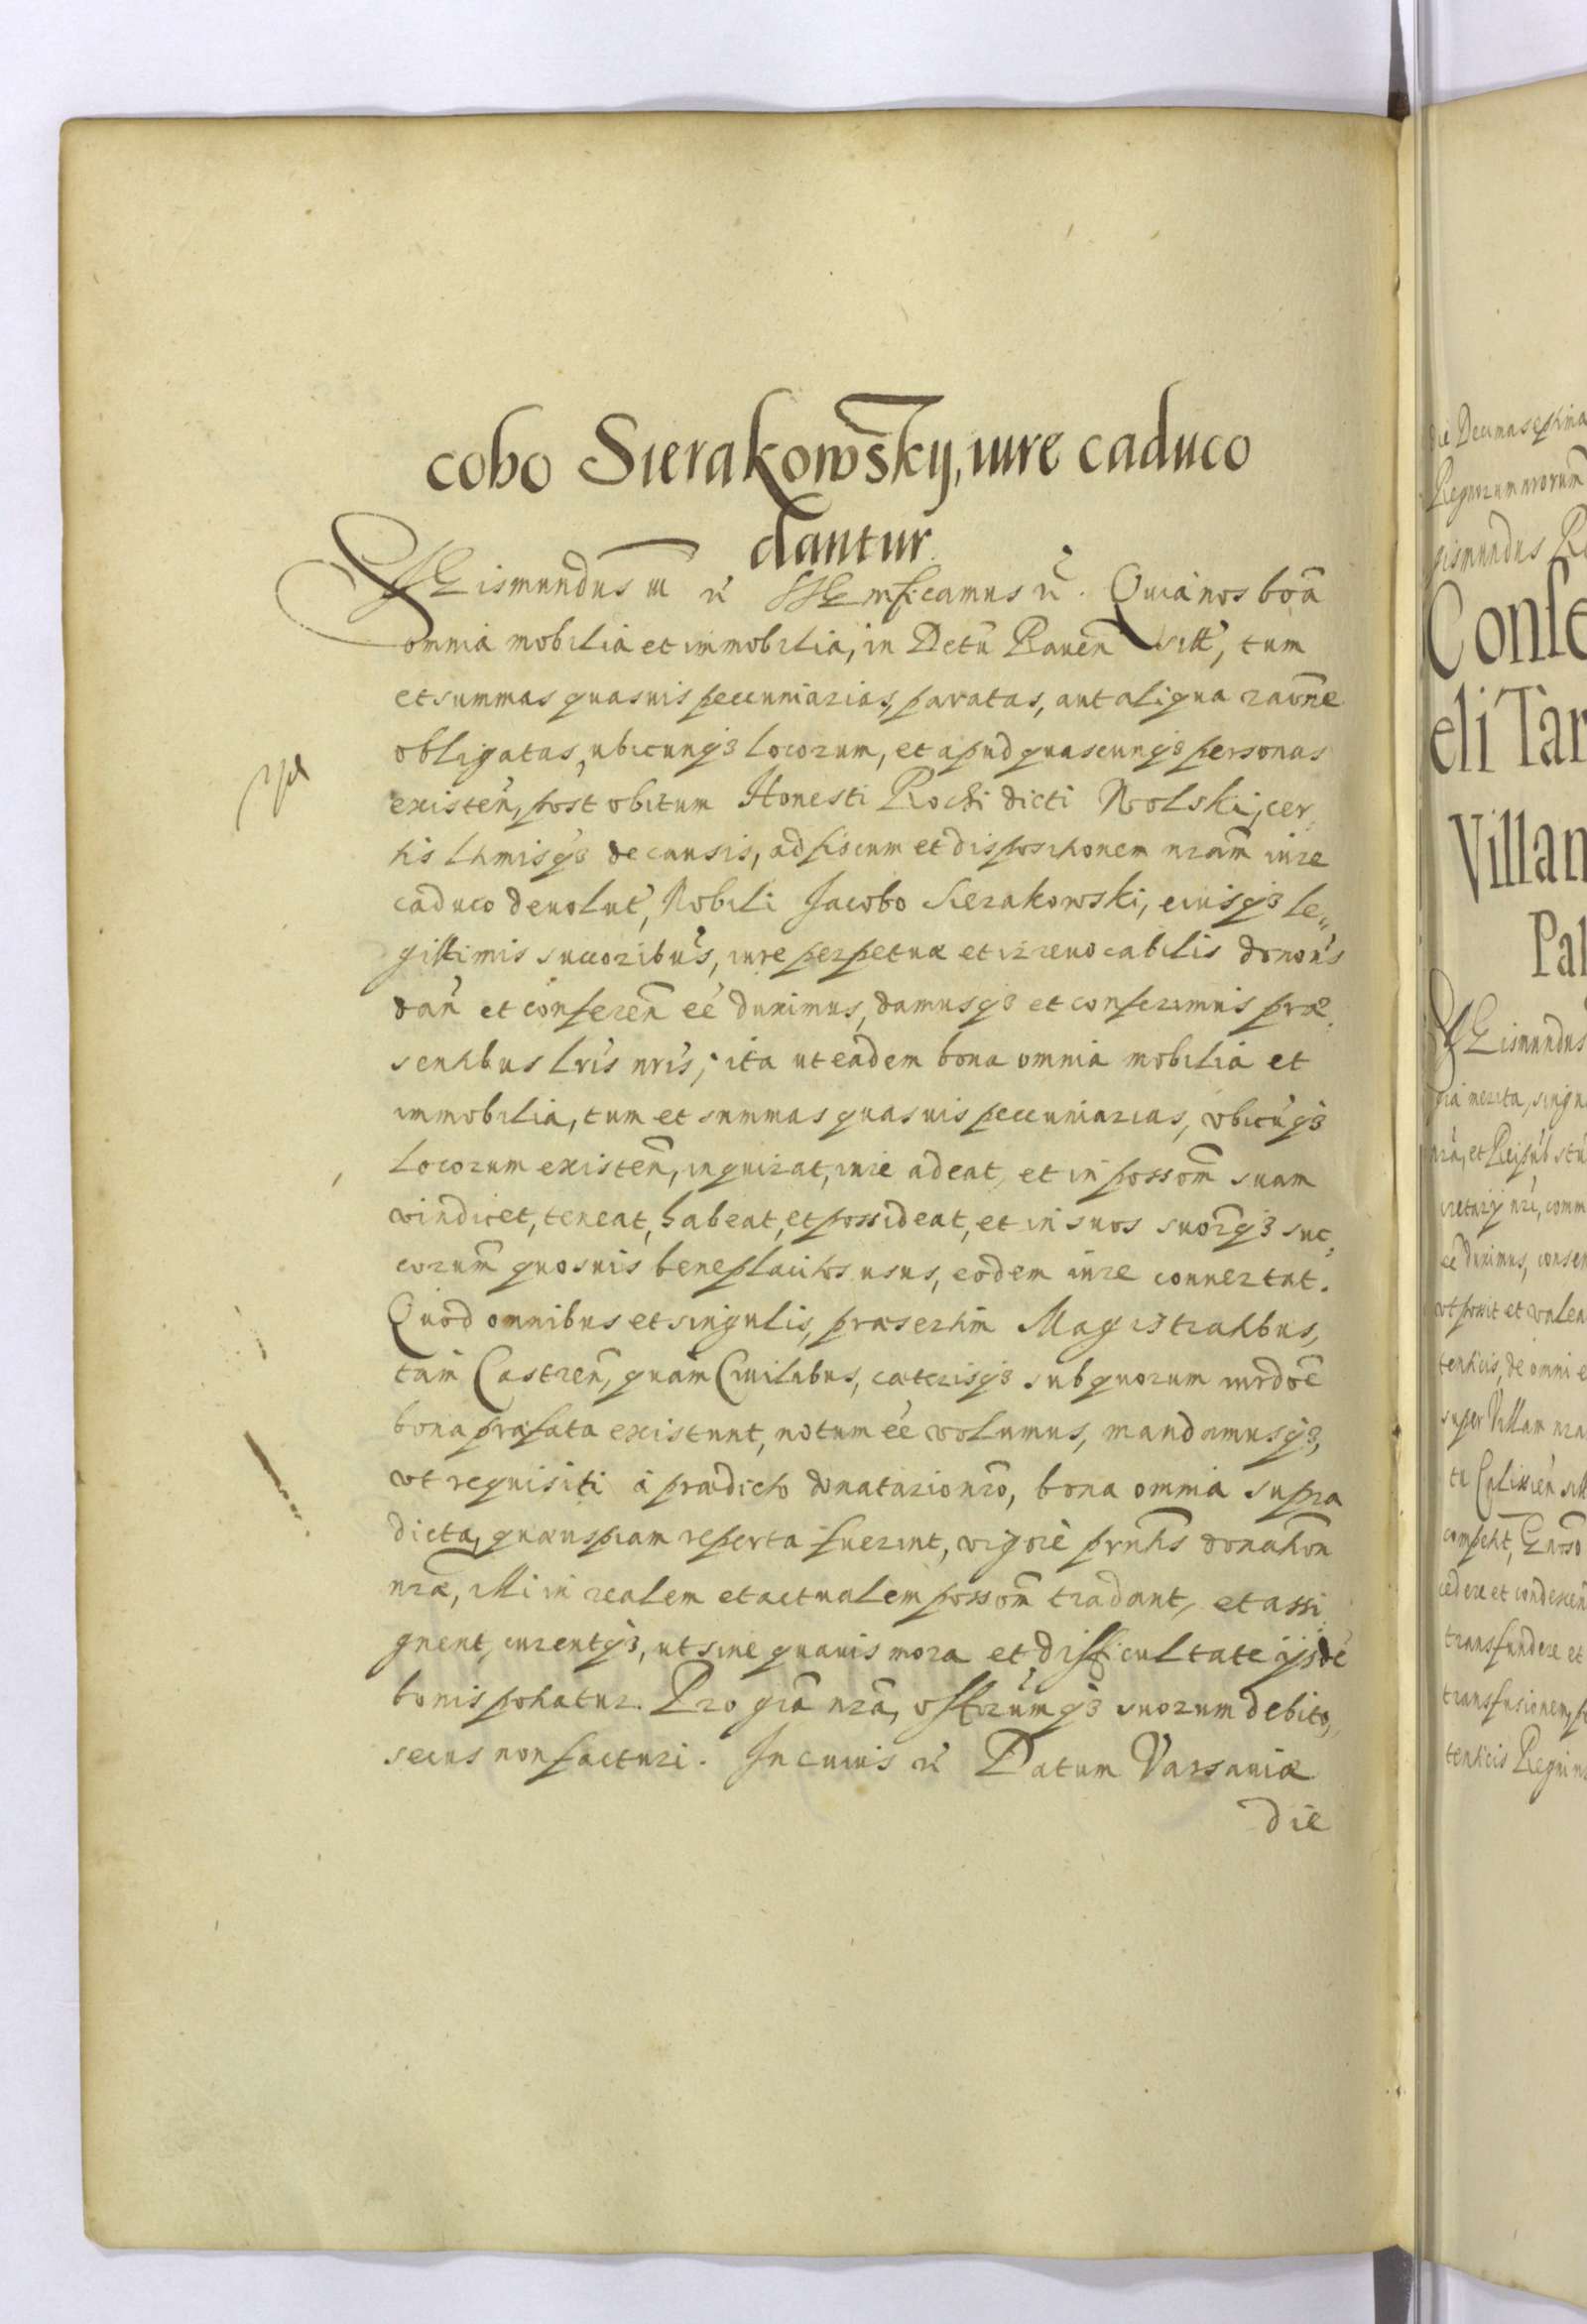 cobo Sierakowsky, iure caduco
dantur.
Sigismundus III &c Significamus &c. Quia nos boã
omnia mobilia et immobilia, in Dctu Raueñ sitt, tum
et summas quasuis pecuniarias, paratas, aut aliqua raõne
obligatas, ubicunq3 locorum, et apud quascunq3 personas
existeñ, post obitum Honesti Rochi dicti Wolski, cer,
tis ltimisq3 de causis, ad fiscum et dispositionem nram̃ iure
caduco deuolut, Nobili Jacobo Sierakowski, eiusq3 le,,
gittimis succoribus, iure perpetuæ et irreuocabilis donoñs
dañ et confereñ ee duximus, damusq3 et conferimus præ,
sentibus lris nris, ita ut eadem bona omnia mobilia et
immobilia, tum et summas quasuis pecuniarias, vbicuq3
locorum existeñ, inquirat, iure adeat, et in possom̃ suam
vindicet, teneat, habeat, et possideat, et in suos suorq3 suc,
corum̃ quosuis beneplacitos usus, eodem iure conuertat.
Quod omnibus et singulis, præsertim Magistratibus,
tam Castreñ, quam Ciuilibus, cæterisq3 sub quorum iurdõe
bona præfata existunt, notum ee volumus, mandamusq3,
vt requisiti à prædicto donatario nro, bona omnia supra
dicta, quæuspiam reperta fuerint, vigore prntis donatioñ
nræ, illi in realem et actualem possom̃ tradant, et assi,
gnent, curentq3, ut sine quauis mora et difficultate ijsdẽ
bonis potiatur. Pro grã nrã, offorumq3 suorum debito,
secus non facturi. In cuius &c Datum Varsauiæ
die
die Decima septima
Regnorum nrorum
gismundus
Conse
eli Tar
Villam
Pal
Sigismundus
merita, singu
nrã, et Reipub
cretarij nri, comm
ee duximus, consen
vt possit et valea
tenticis, de omni
super Villam nra
te Calissien̄
competit,
cedere et condescen
transfundere et
transfusionem,
tenticis Regni